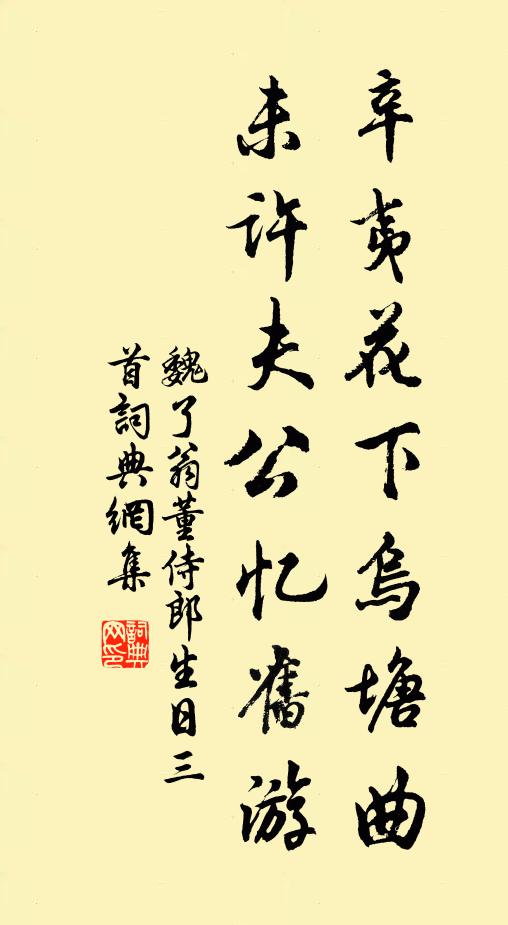 辛夷花下烏塘曲
未許夫公忆舊游
魏了翁董侍郎生日三
首詞典網集
詞典
网印